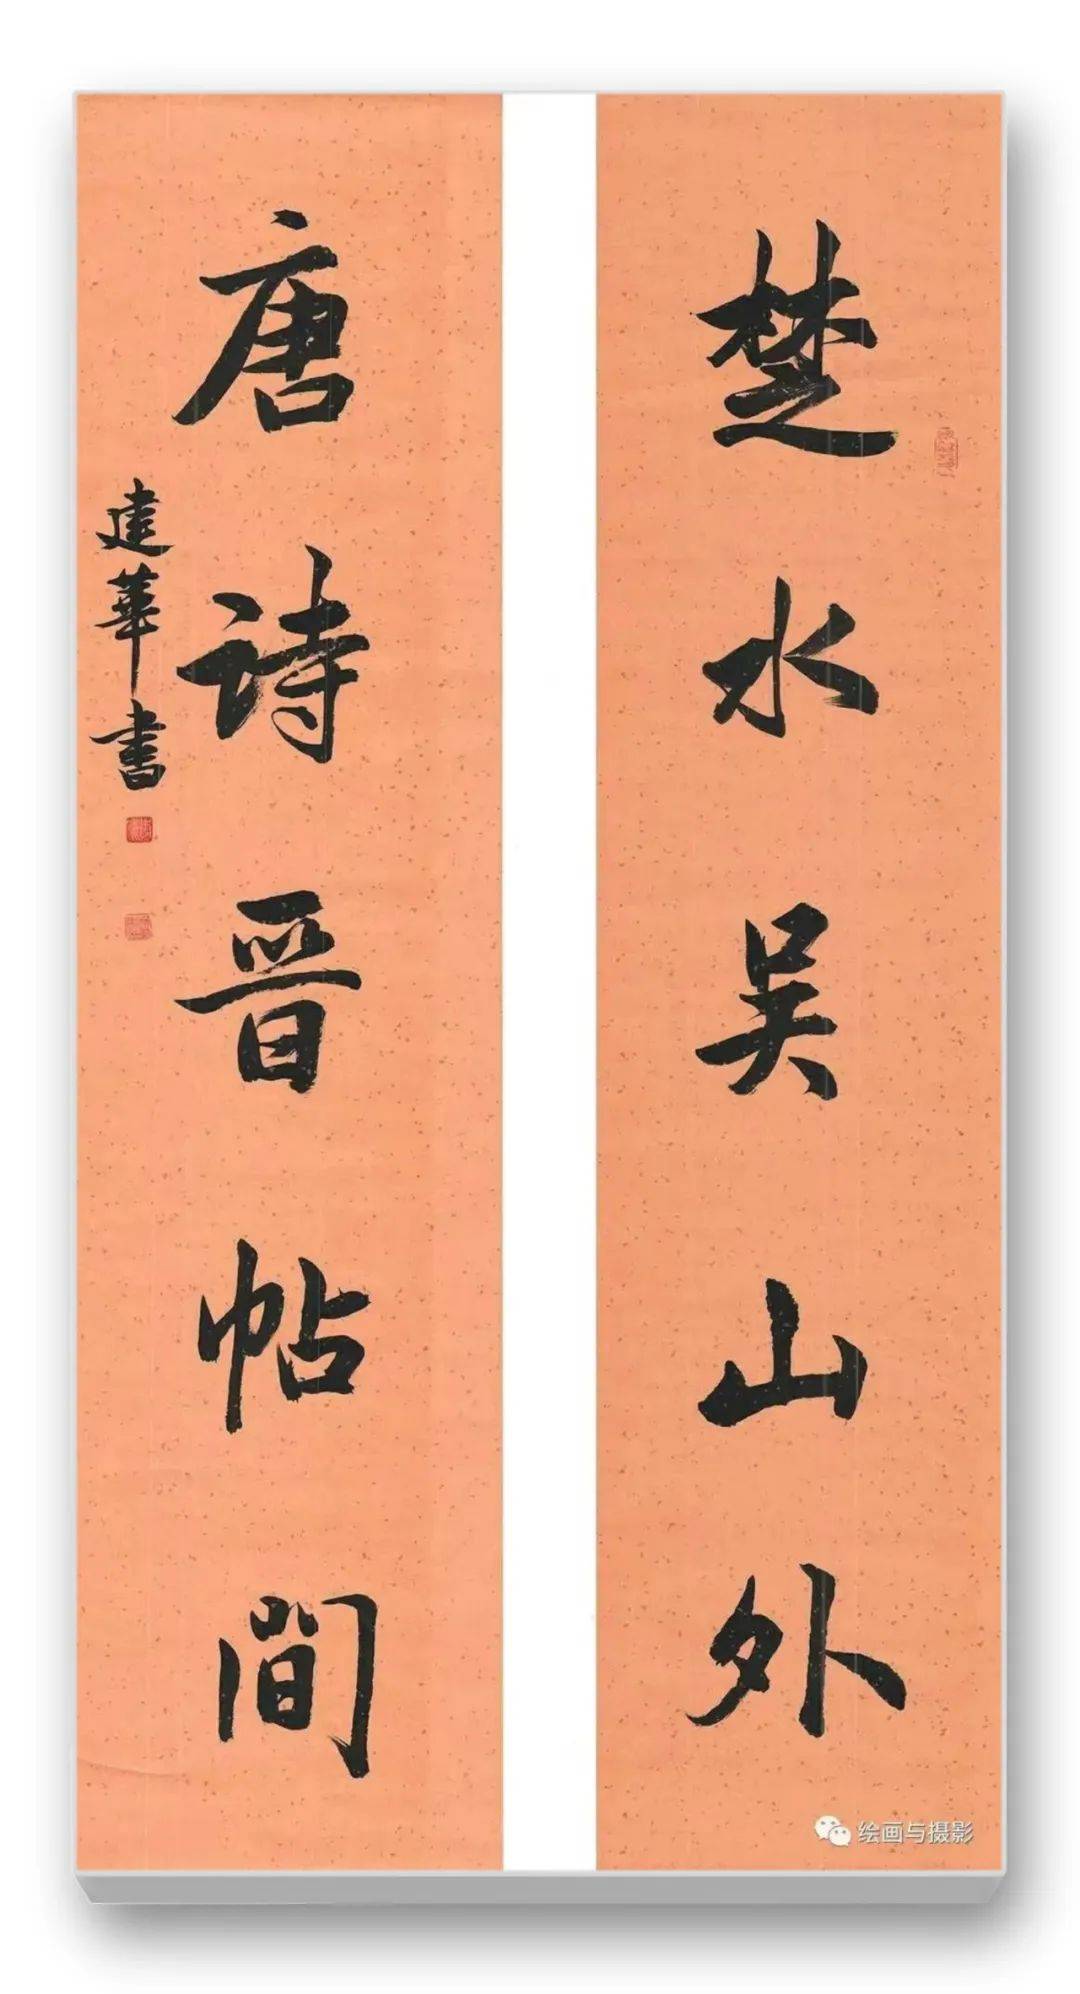 楚水吴山外
唐诗晋帖间
建華书
绘画与摄影